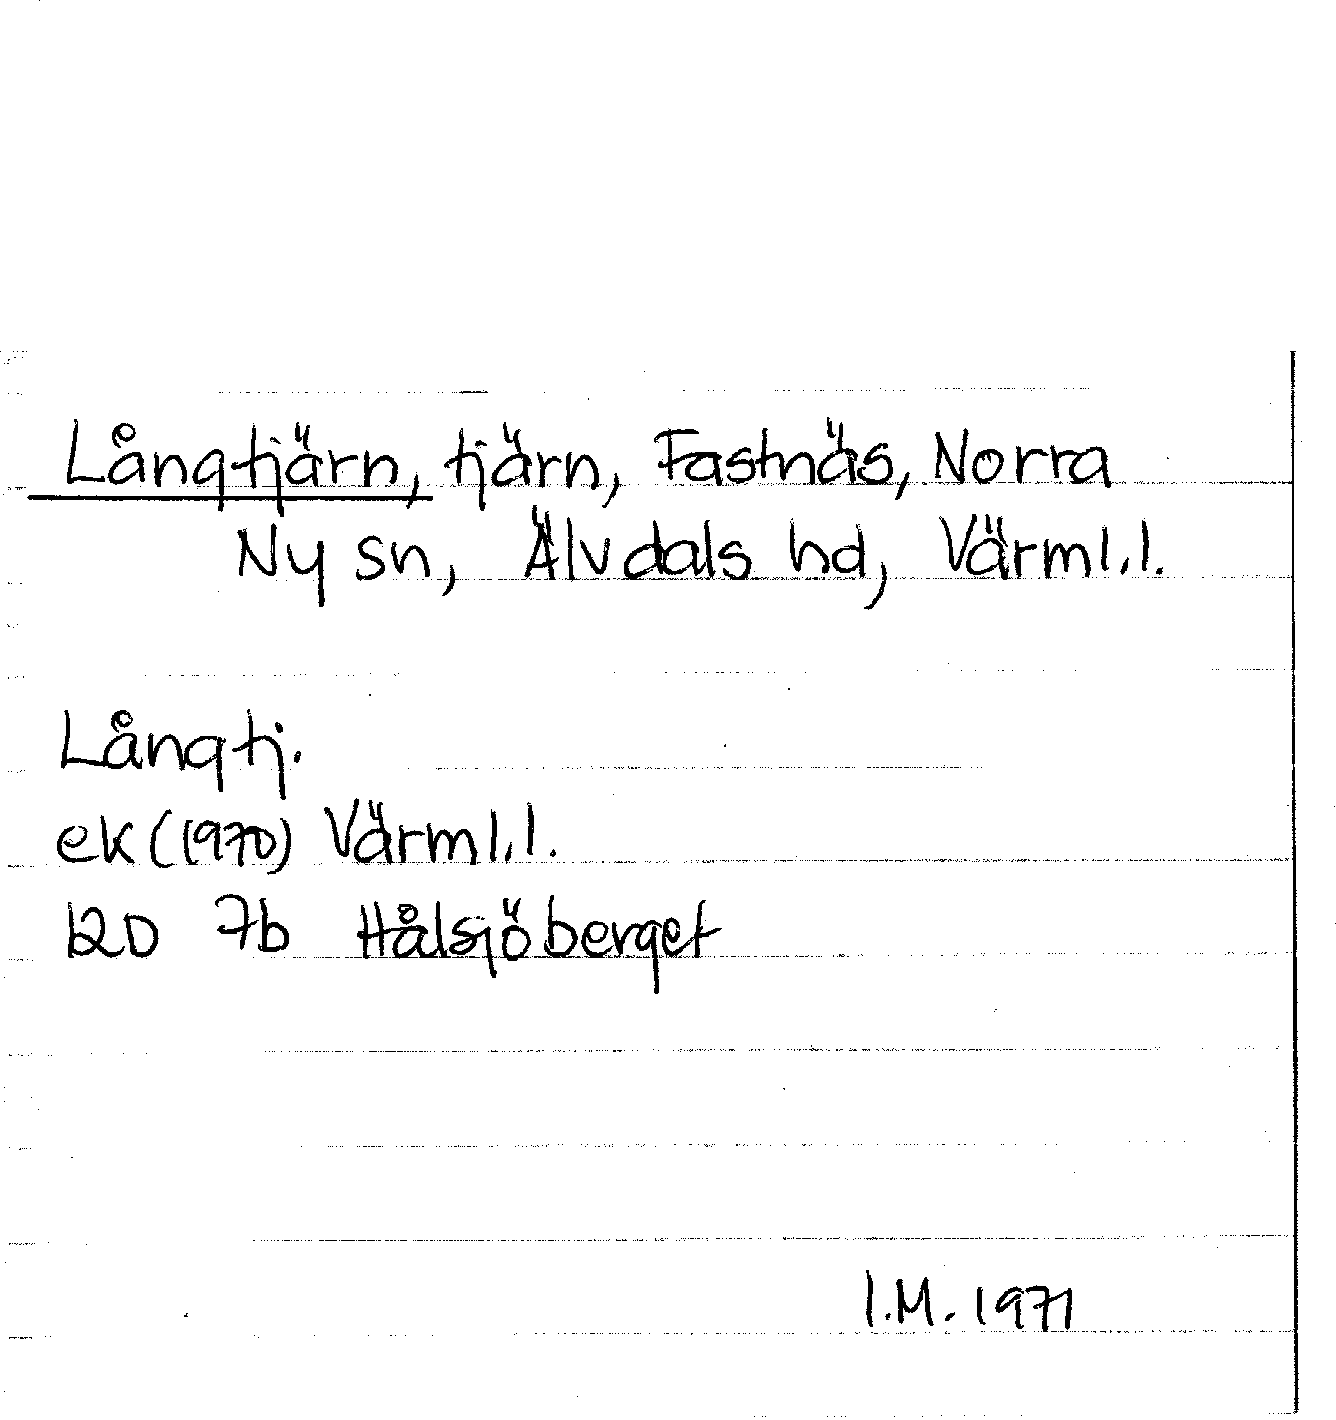 Långtjärn, tjärn, Fastnäs, Norra
Ny sn, Älvdals hd, Värml.l.
Långtj.
ek (1970) Värml.l.
12D 7b Hålsjöberget
I.M. 1971